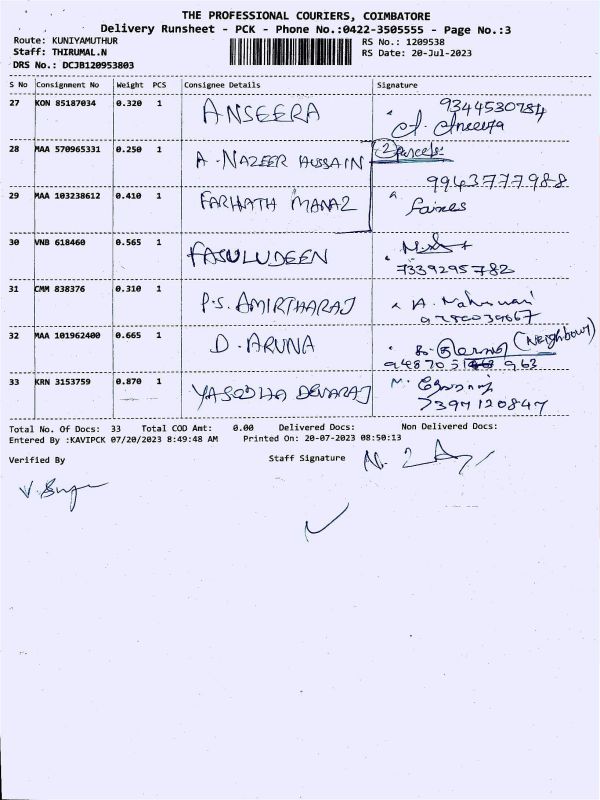 THE PROFESSIONAL COURIERS, COIMBATORE
Delivery Runsheet - PCK - Phone No.:0422-3505555 - Page No.:3
Route: KUNIYAMUTHUR
RS No.: 1209538
Staff: THIRUMAL.N
RS Date: 20-Jul-2023
DRS No.: DCJB120953803
S No Consignment No Weight PCS Consignee Details Signature
27 KON 85187034 0.320 1 ANSEERA 9344530784
A. Aneeera
28 MAA 570965331 0.250 1 A. NAZEER HUSSAIN 2 Parcels
29 MAA 103238612 0.410 1 FARHATH MANAZ 9943777988
30 VNB 618460 0.565 1 FASULUDEEN
7339295782
31 CMM 838376 0.310 1 P.S. AMIRTHARAJ
32 MAA 101962400 0.665 1 D. ARUNA (Neighbour)
33 KRN 3153759 0.870 1 YASODHA DEVARAJ
7397120847
Total No. Of Docs: 33 Total COD Amt: 0.00 Delivered Docs: Non Delivered Docs:
Entered By :KAVIPCK 07/20/2023 8:49:48 AM Printed On: 20-07-2023 08:50:13
Verified By Staff Signature